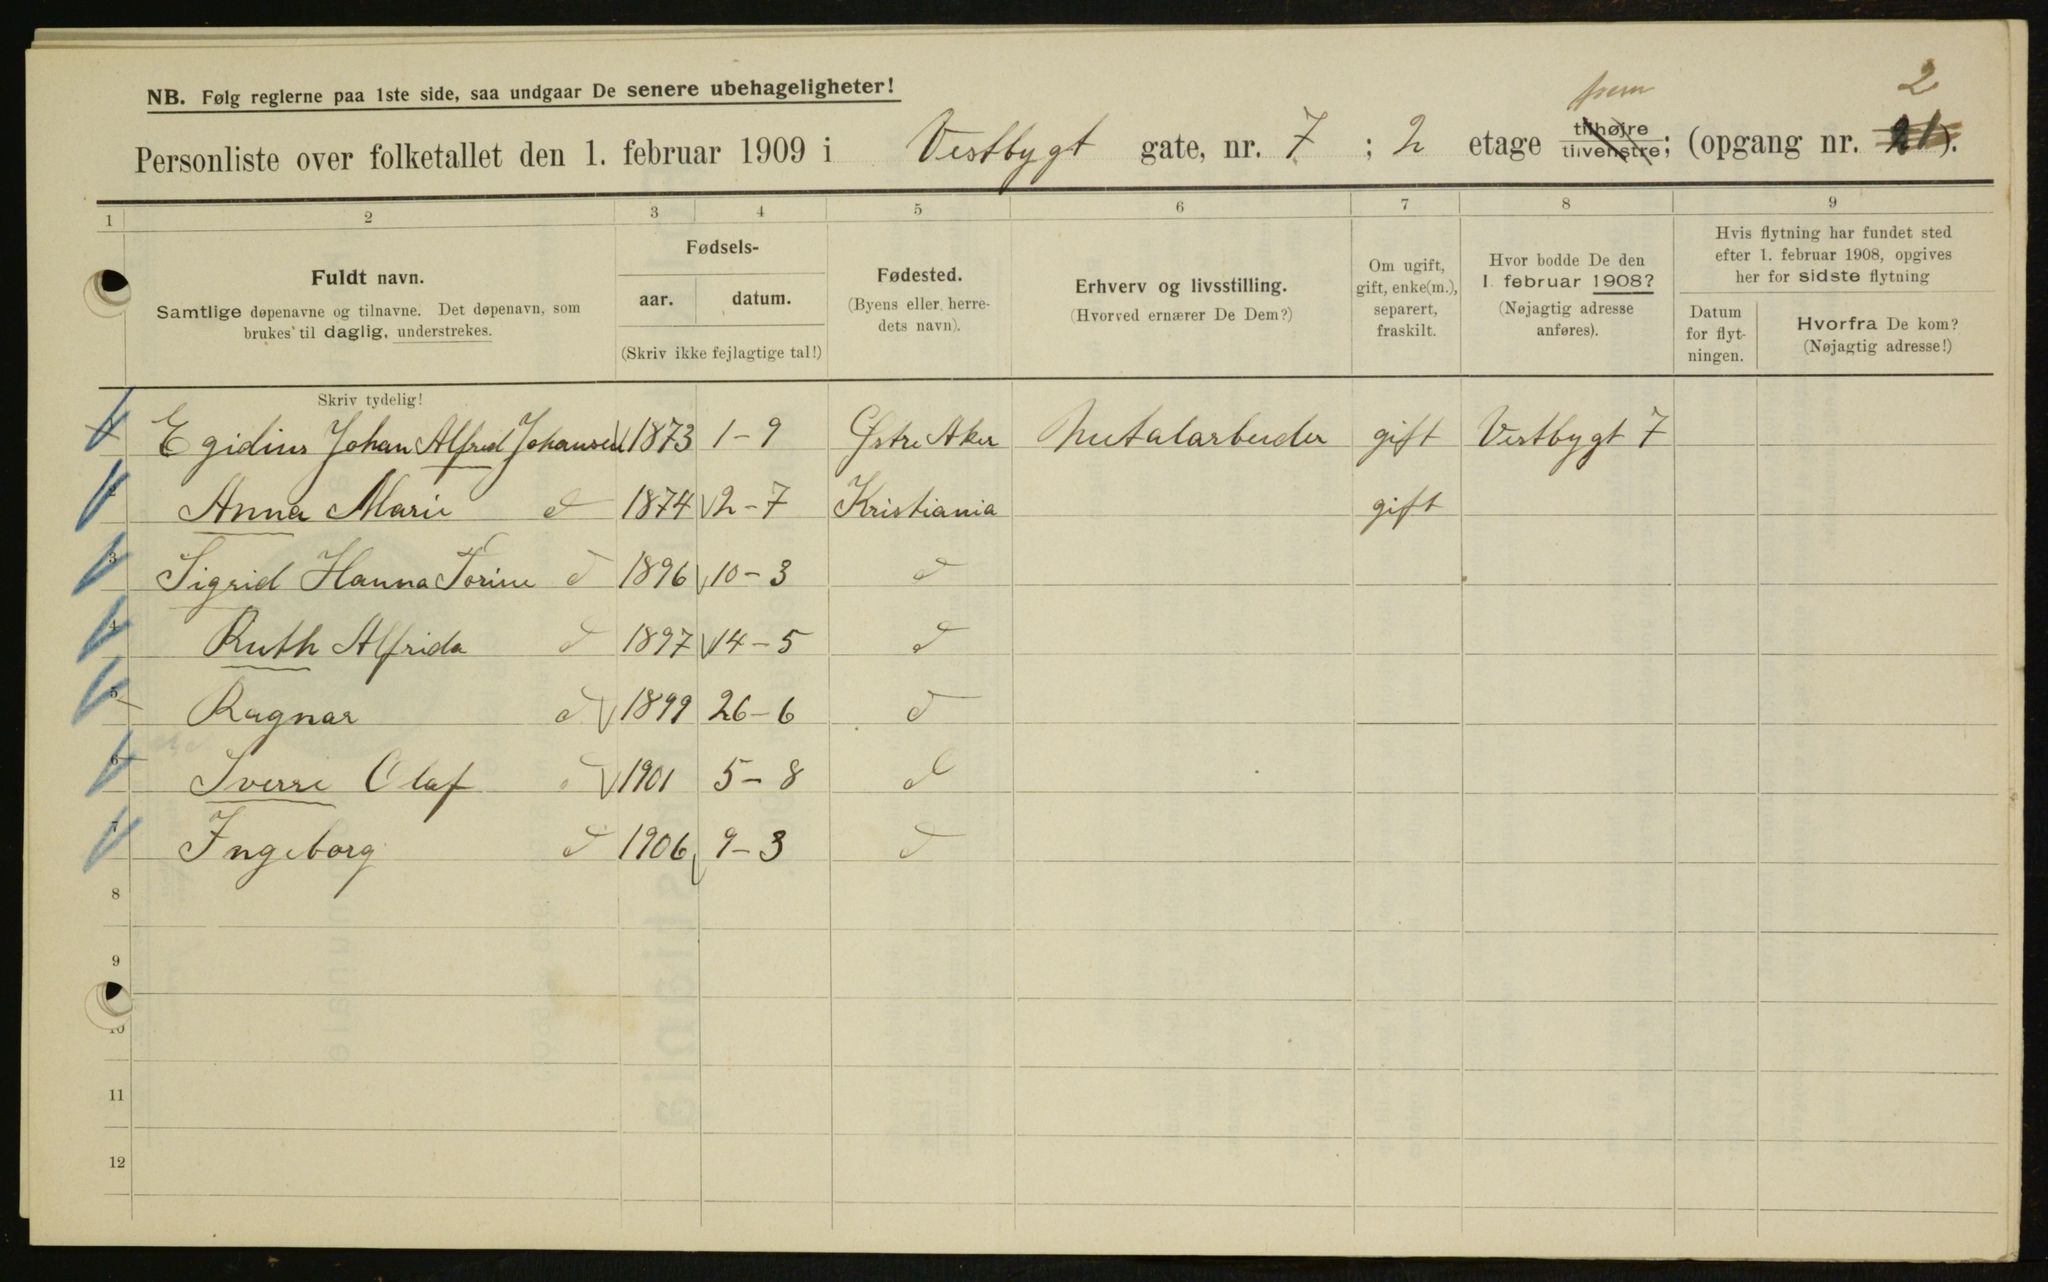 frem 2
NB. Følg reglerne paa 1ste side, saa undgaar De senere ubehageligheter!
Personliste over folketallet den 1. februar 1909 i Vestbygt gate, nr. 7 ; 2 etage tilhøjre tilvenstre; (opgang nr. 21).
1 2 3 4 5 6 7 8 9
Fuldt navn.
Samtlige døpenavne og tilnavne. Det døpenavn, som
brukes til daglig, understrekes.
Fødsels-
aar. datum.
(Skriv ikke fejlagtige tal!)
Fødested.
(Byens eller herre-
dets navn).
Erhverv og livsstilling.
(Hvorved ernærer De Dem?)
Om ugift,
gift, enke(m.),
separert,
fraskilt.
Hvor bodde De den
1. februar 1908?
(Nøjagtig adresse
anføres).
Hvis flytning har fundet sted
efter 1. februar 1908, opgives
her for sidste flytning
Datum
for flyt-
ningen.
Hvorfra De kom?
(Nøjagtig adresse!)
Skriv tydelig!
1 Egidius Johan Alfred Johansen 1873 1-9 Østre Aker Metalarbeider gift Vestbygt 7
2 Anna Marie d 1874 2-7 Kristiania gift
3 Sigrid Hanna Torine d 1896 10-3 d
4 Ruth Alfrida d 1897 14-5 d
5 Ragnar d 1899 26-6 d
6 Sverre Olaf d 1901 5-8 d
7 Ingeborg d 1906 9-3 d
8
9
10
11
12